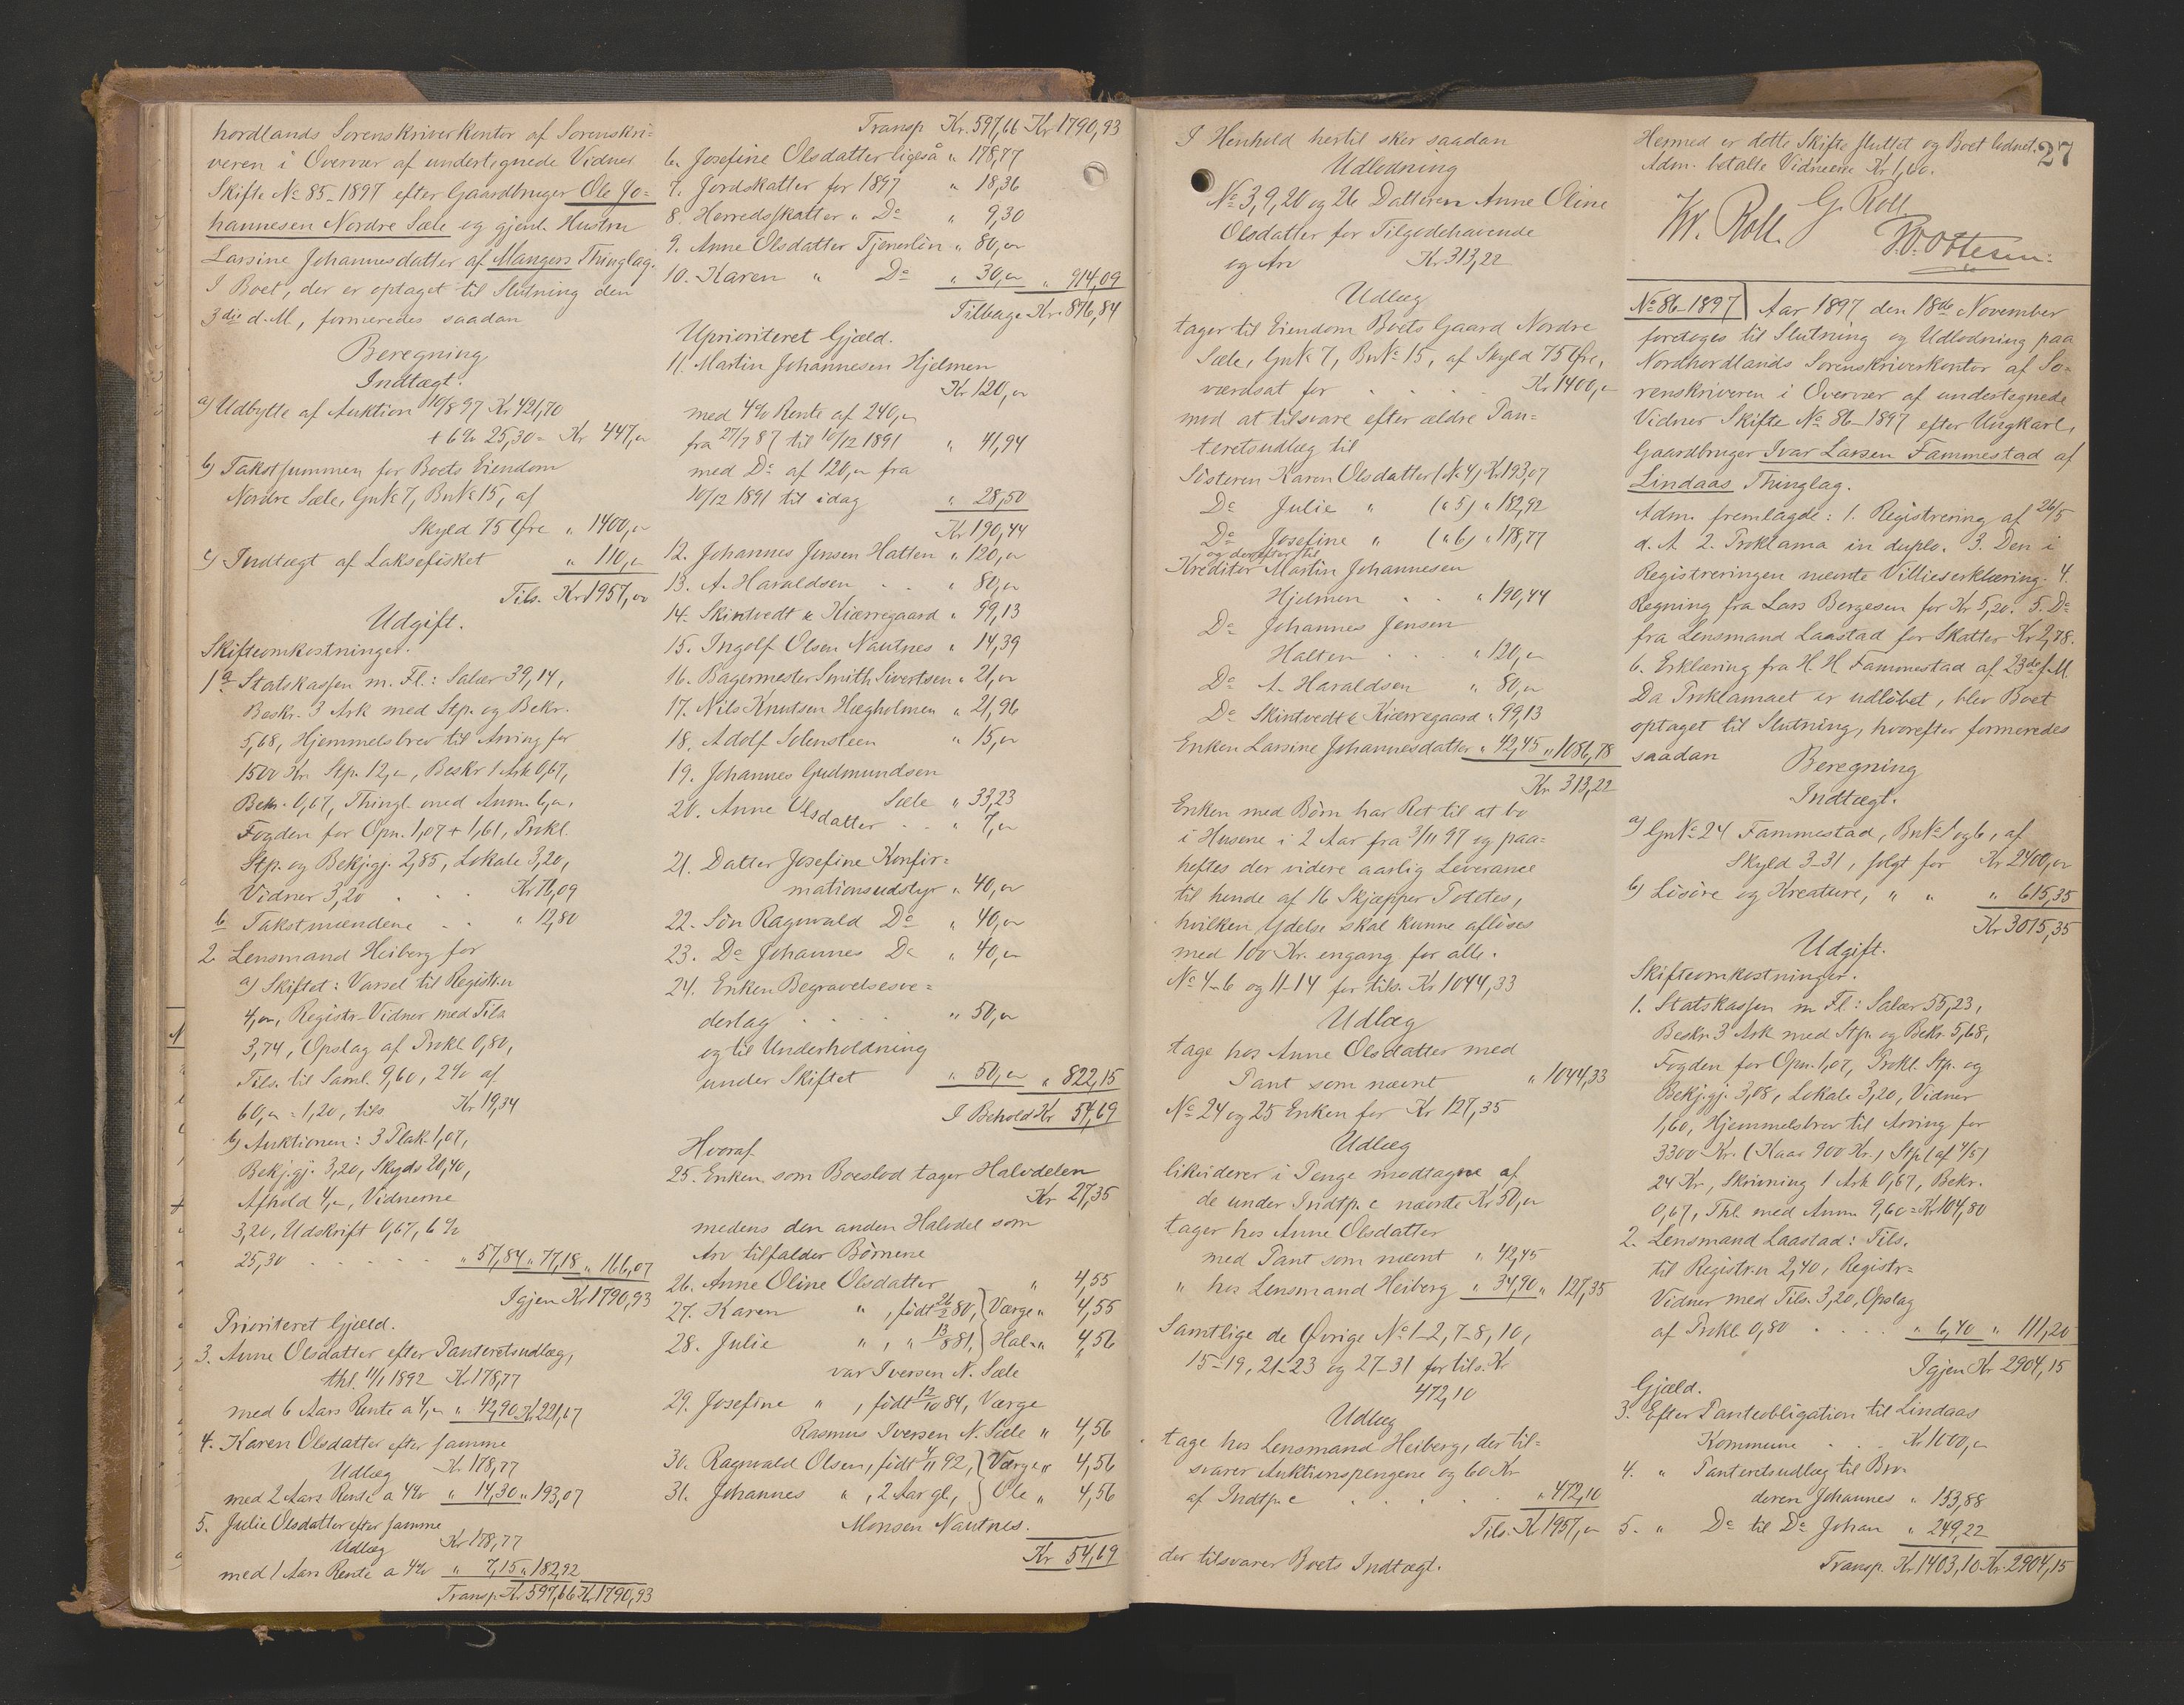 hordlands Sorenskriverkontor af Sorenskri=
veren i Overvær af undertegnede Vidner
Skifte No 85-1897 efter Gaardbruger Ole Jo=
hannesen Nordre Sæle og gjenl. Hustru
Lassine Johannesdatter af Mangers Thinglag.
I Boet, der er optaget til Slutning den
3die d. M., formeredes saadan
Beregning
Indtægt.
a) Udbytte af Auktion 10/8 97 Kr 421,70
+ 6% 25,30 = Kr 447,"
b) Takstsummen for Boets Eiendom
Nordre Sæle, GNo 7, BNo 15, af
Skyld 75 Øre " 1400,"
c) Indtægt af Laksefisket " 110,"
Tils. Kr 1957,00
Udgift.
Skifteomkostninger.
1 a Statskassen m. Fl.: Salær 39,14,
Beskr. 3 Ark med Stp. og Bekr.
5,68, Hjemmelsbrev til Arving for
1500 Kr. Stp. 12,", Beskr 1 Ark 0,67,
Bekr. 0,67, Thingl. med Anm. 6,",
Fogden for Opn. 1,07 + 1,61, Prokl.
Stp. og Bekj.gj. 2,85, Lokale 3,20,
Vidner 3,20 . . Kr 76,09
b Takstmændene . . " 12,80
2 Lensmand Heiberg for
a) Skiftet: Varsel til Registr.n
4,00, Registr-Vidner med Tils
3,74, Opslag af Prokl 0,80,
Tils. til Saml. 9,60, 2% af
60," = 1,20, tils Kr 19,34
b) Auktionen: 3 Plak. 1,07,
Bekj.gj. 3,20, Skyds 20,40,
Afhold 4,", Vidnerne
3,20, Udskrift 0,67, 6%
25,30 . . . . " 57,84 " 77,18 " 166,07
Igjen Kr 1790,93
Prioriteret Gjæld.
3. Anne Olsdatter efter Panteretsudlæg,
thl. 11/1 1892 Kr 178,77
med 6 Aars Rente a 4," " 42,90 Kr 221,67
4. Karen Olsdatter efter samme
Udlæg Kr 178,77
med 2 Aars Rente a 4% " 14,30 " 193,07
5. Julie Olsdatter efter samme
Udlæg Kr 178,77
med 1 Aars Rente a 4% " 7,15 " 182,92
Transp. Kr 597,66 Kr 1790,93
Transp Kr. 597,66 Kr 1790,93
6. Josefine Olsdatter ligeså " 178,77
7. Jordskatter for 1897 " 18,36
8. Herredsskatter " Do " 9,30
9. Anne Olsdatter Tjenerløn " 80,00
10. Karen " Do " 30,00 " 914,09
Tilbage Kr. 876,84
Uprioriteret Gjæld.
11. Martin Johannesen Hjelmen
Kr 120,00
med 4% Rente af 240,"
fra 27/7 87 til 10/12 1891 " 41,94
med Do af 120," fra
10/12 1891 til idag " 28,50
Kr 190,44
12. Johannes Jensen Hatten " 120,00
13. A. Haraldsen . . " 80,00
14. Skintvedt & Kiærregaard " 99,13
15. Ingolf Olsen Nautnes " 14,39
16. Bagermester Smith Sivertsen " 21,00
17. Nils Knutsen Hægholmen " 21,96
18. Adolf Solensteen " 15,00
19. Johannes Gudmundsen
Sæle " 33,23
20. Anne Olsdatter . . " 7,00
21. Datter Josefine Konfir=
mationsudstyr " 40,00
22. Søn Ragnvald Do " 40,00
23. Do Johannes Do " 40,"
24. Enken Begravelsesve=
derlag . . . . " 50,00
og til Underholdning
under Skiftet " 50,00 " 822,15
I Behold Kr 54,69
Hvoraf
25. Enken som Boeslod tager Halvdelen
Kr 27,35
medens den anden Halvdel som
Arv tilfalder Børnene
26. Anne Oline Olsdatter " 4,55
27. Karen " , født 26/2 80, } Værge " 4,55
28. Julie " , " 13/8 81, } Hal= " 4,56
var Iversen N. Sæle
29. Josefine " , født 12/10 84, Værge
Rasmus Iversen N. Sæle " 4,56
30. Ragnvald Olsen, født 4/11 92, } Værge " 4,56
31. Johannes " , 2 Aar gl., } Ole " 4,56
Monsen Nautnes.
Kr 54,69
I Henhold hertil sker saadan
Udlodning
No 3, 9, 20 og 26 Datteren Anne Oline
Olsdatter for Tilgodehavende
og Arv Kr. 313,22
Udlæg
tager til Eiendom Boets Gaard Nordre
Sæle, GNo 7, BNo 15, af Skyld 75 Øre,
værdsat for . . . . Kr 1400,"
mod at tilsvare efter ældre Pan=
teretsudlæg til
Søsteren Karen Olsdatter (No 4) Kr 193,07
Do Julie " (" 5) " 182,92
Do Josefine " (" 6) " 178,77
og derefter til
Kreditor Martin Johannesen
Hjelmen . . " 190,44
Do Johannes Jensen
Halten . . . " 120,"
Do A. Haraldsen " 80,"
Do Skintvedt & Kiærregaard " 99,13
Enken Lassine Johannesdatter " 42,45 " 1086,78
Kr 313,22
Enken med Børn har Ret til at bo
i Husene i 2 Aar fra 3/11 97 og paa=
heftes der videre aarlig Leverance
til hende af 16 Skjæpper Potetes,
hvilken Ydelse skal kunne afløses
med 100 Kr. engang for alle.
No 4-6 og 11-14 for tils. Kr 1044,33
Udlæg
tage hos Anne Olsdatter med
Pant som nævnt " 1044,33
No 24 og 25 Enken for Kr 127,35
Udlæg
likviderer i Penge modtagne af
de under Indtp. c nævnte Kr 50,00
tager hos Anne Olsdatter
med Pant som nævnt " 42,45
" hos Lensmand Heiberg " 34,90 " 127,35
Samtlige de Øvrige No 1-2, 7-8, 10,
15-19, 21-23 og 27-31 for tils. Kr
472,10
Udlæg
tage hos Lensmand Heiberg, der til=
svarer Auktionspengene og 60 Kr
af Indtp. c . . . . . " 472,10
Tils. Kr 1957,"
der tilsvarer Boets Indtægt.
Hermed er dette Skifte sluttet og Boet lodnet.
27
Adm. betalte Vidnerne Kr 1,60.
G. Roll
Kr. Roll.
No 86-1897 Aar 1897 den 18de November
foretoges til Slutning og Udlodning paa
Nordhordlands Sorenskriverkontor af So=
renskriveren i Overvær af undertegnede
Vidner Skifte No 86-1897 efter Ungkarl,
Gaardbruger Ivar Larsen Fammestad af
Lindaas Thinglag.
Adm. fremlagde: 1. Registrering af 26/5
d. A. 2. Proklama in duplo. 3. Den i
Registreringen nævnte Villieserklæring. 4.
Regning fra Lars Børgesen for Kr 5,20. 5. Do
fra Lensmand Laastad for Skatter Kr 2,78.
6. Erklæring fra H. H. Fammestad af 23de f. M.
Da Proklamaet er udløbet, blev Boet
optaget til Slutning, hvorefter formeredes
saadan
Beregning
Indtægt.
a) GNo 24 Fammestad, BNo 1 og 6, af
Skyld 3-31, solgt for Kr 2400,00
b) Løsøre og Kreature, " " " 615,35
Kr 3015,35
Udgift.
Skifteomkostninger.
1. Statskassen m Fl.: Salær 55,23,
Beskr. 3 Ark med Stp. og Bekr. 5,68,
Fogden for Opn. 1,07, Prokl. Stp. og
Bekj.gj. 3,08, Lokale 3,20, Vidner
1,60, Hjemmelsbrev til Arving for
3300 Kr. (Kaar 900 Kr.) Stp. (af 4/5)
24 Kr, Skrivning 1 Ark 0,67, Bekr.
0,67, Thl. med Anm. 9,60 = Kr 104,80
2. Lensmand Laastad: Tils.
til Registr.n 2,40, Registr=
Vidner med Tils. 3,20, Opslag
af Prokl 0,80 . . . . " 6,40 " 111,20
Igjen Kr 2904,15
Gjæld.
3. Efter Panteobligation til Lindaas
Kommune . . Kr 1000,"
4. " Panteretsudlæg til Bro=
deren Johannes " 153,88
5. " Do til Do Johan " 249,22
Transp. Kr 1403,10 Kr. 2904,15